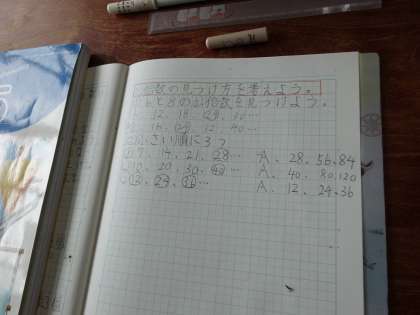 公倍数の見つけ方を考えよう。
6と8の公倍数を見つけよう。
12、18、24、30…
16、24、32、40…
小さい順に3つ
7、14、21、28… A、28、56、84
10、20、30、40… A、40、80、120
12、24、36… A、12、24、36